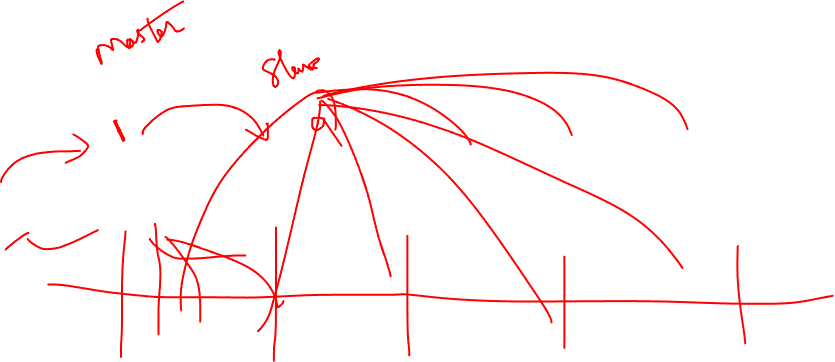 Master
Slave